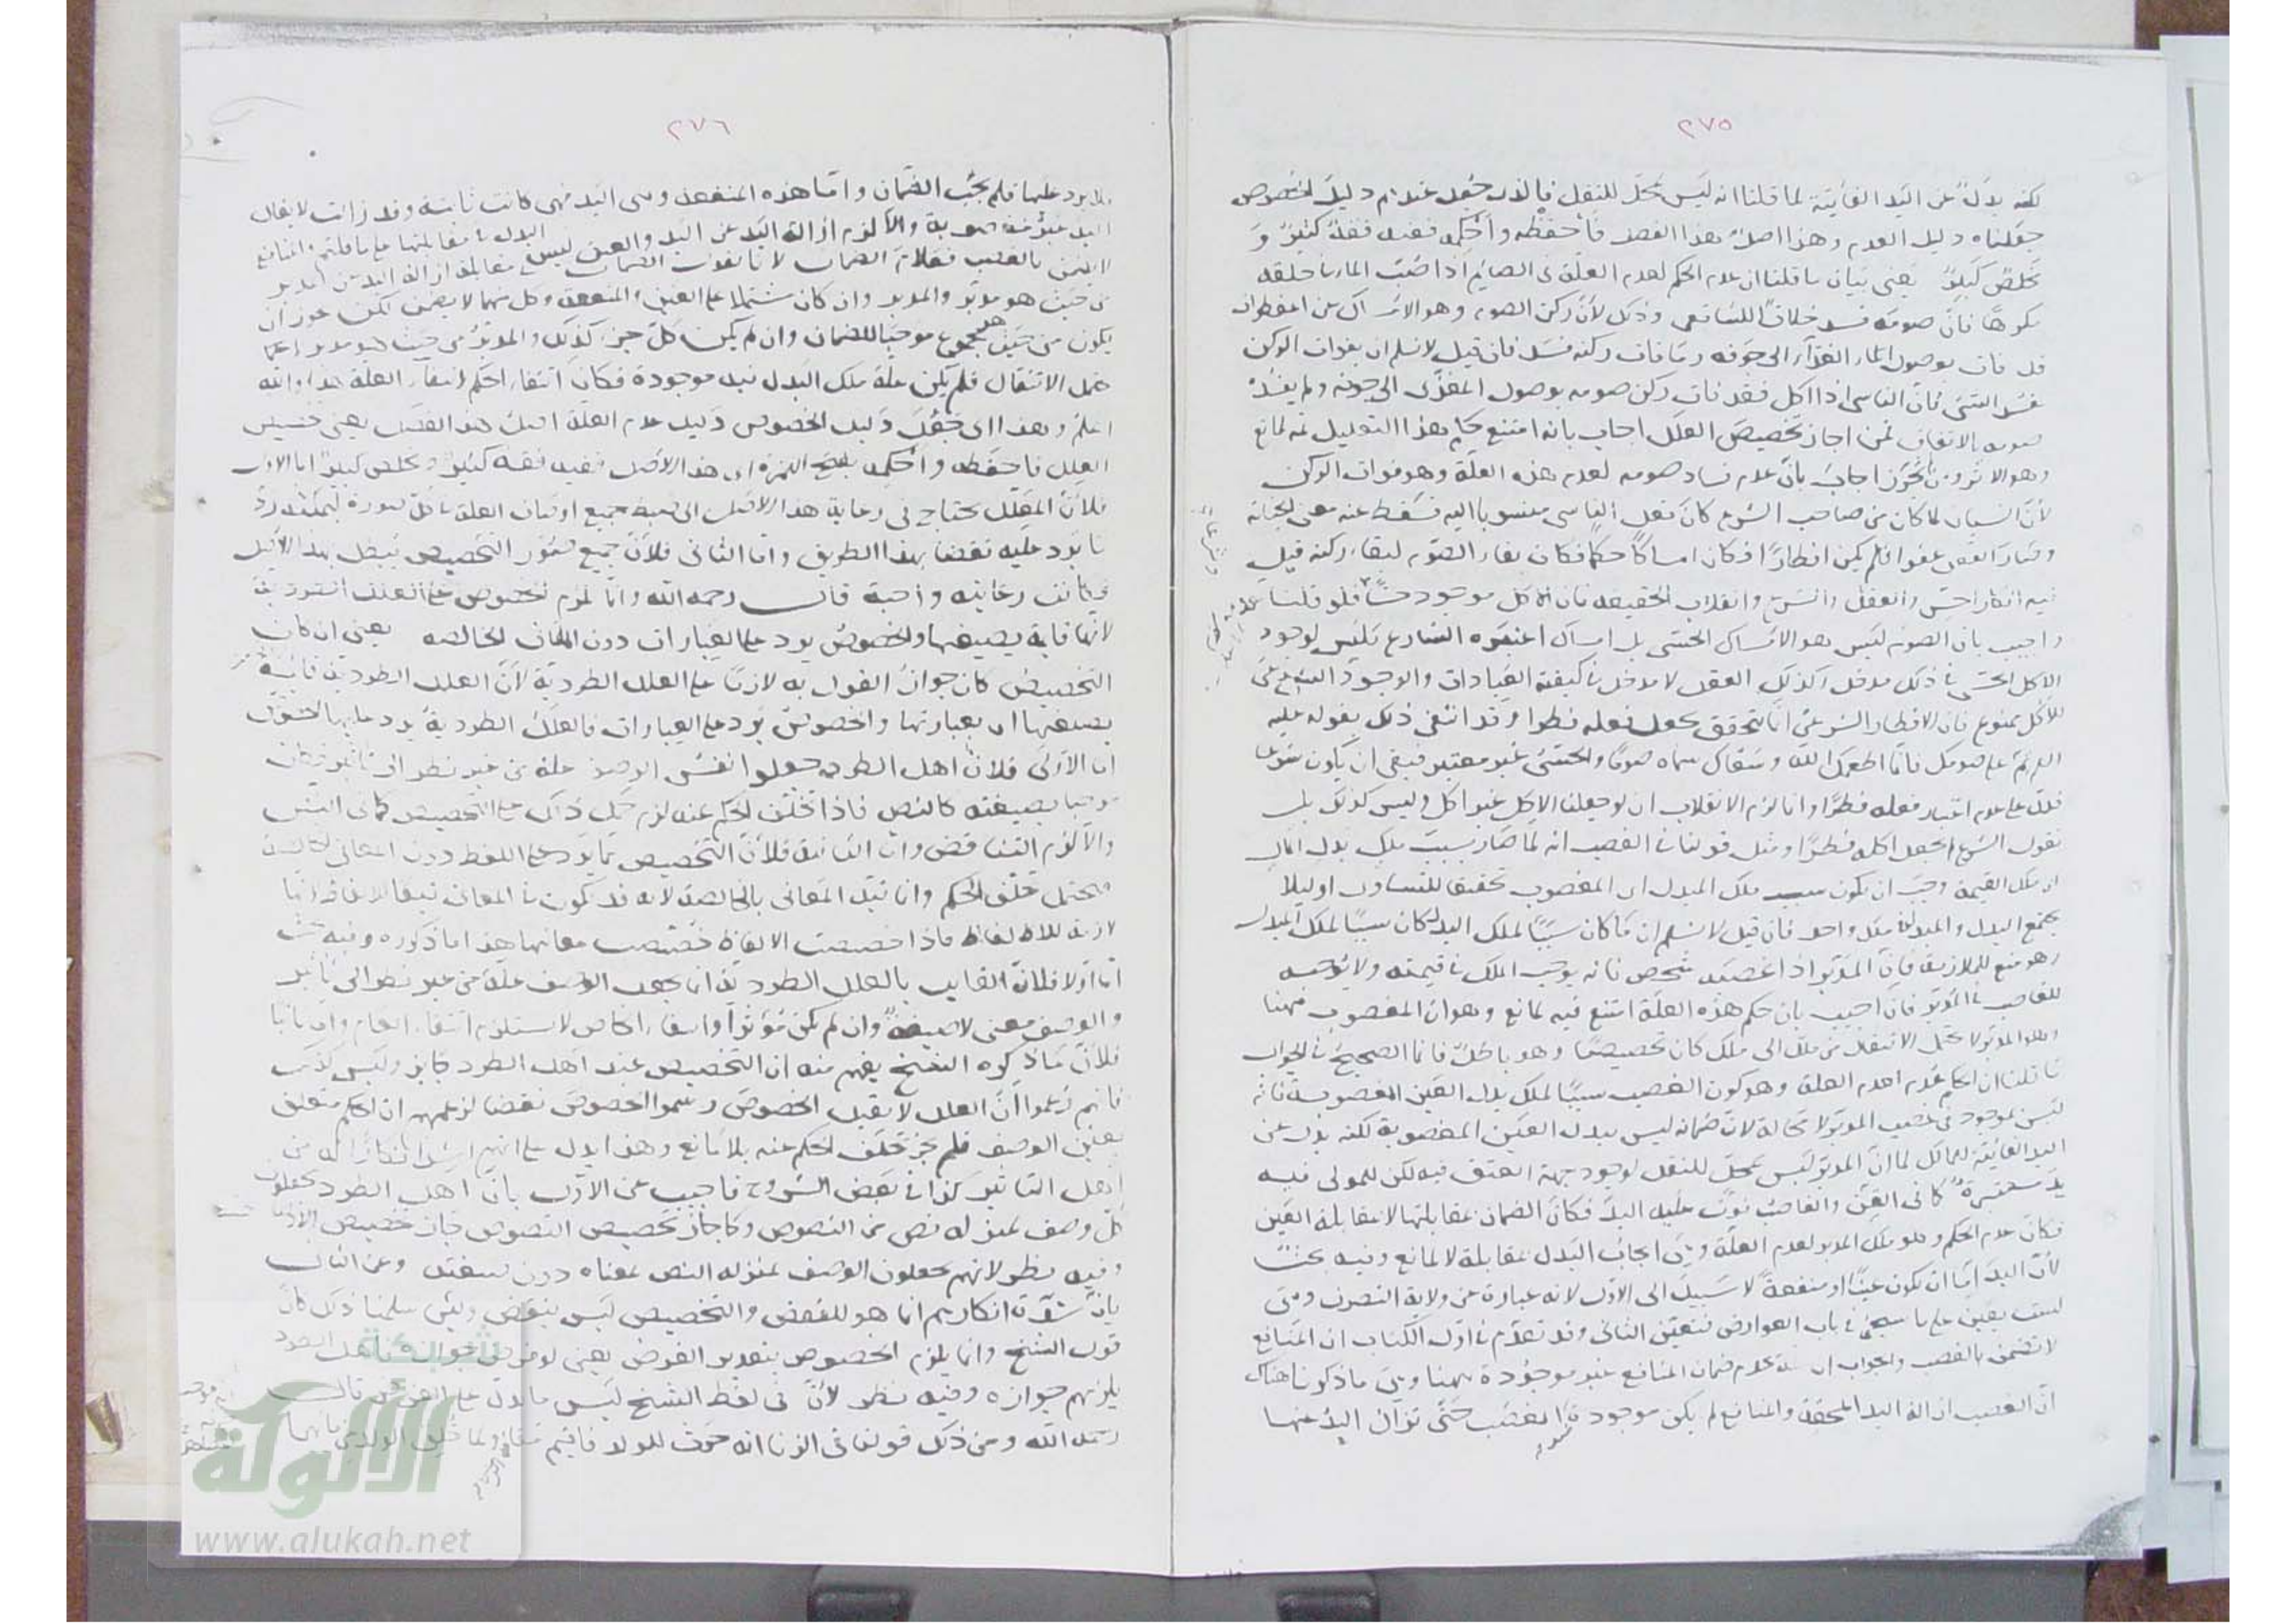 ٢٧٥
لكنه بدل عن اليد الفائتة لما قلنا انه ليس بمحل للنقل فالذي جعل عندهم دليل الخصوص
جعلناه دليل العدم وهذا اصل هذا الفصل فاحفظه واحكمه ففيه فقه كثير و
مخلص كبير يعني بيان ما قلنا ان عدم الحكم لعدم العلة في الصائم اذا صب الماء في حلقه
مكرها فان صومه فسد خلافا للشافعي وذلك لأن ركن الصوم وهو الامساك عن المفطرات
قد فات بوصول الماء الى جوفه وما فات ركنه فسد فان قيل لا نسلم ان بفوات الركن
فسد الشئ فان الناسي اذا اكل فقد فات ركن صومه بوصول المغذى الى جوفه ولم يفسد
صومه بالاتفاق فمن اجاز تخصيص العلل اجاب بانه امتنع حكم هذا التعليل ثمه لمانع
وهو الاثر ومن لم يجوز اجاب بان عدم فساد صومه لعدم هذه العلة وهو فوات الركن
لأن النسيان لما كان من صاحب الشرع كان فعل الناسي منسوبا اليه فسقط عنه معنى الجناية
وصار الفعل عفوا فلم يكن افطارا فكان امساكا حكما فكان بقاء الصوم لبقاء ركنه قيل
فيه انكار الحس والعقل والشرع وانقلاب الحقيقة فان الاكل موجود حسا فلو قلنا
واجيب بان الصوم ليس هو الامساك الحسي بل امساك اعتبره الشارع فليس لوجود
الاكل الحسي في ذلك مدخل وكذلك العقل لا مدخل في كيفية العبادات والوجود الشرعي
للاكل ممنوع فان الافطار الشرعي انما يتحقق بجعل فعله فطرا وقد انتفى ذلك بقوله عليه
السلام تم على صومك فانما اطعمك الله وسقاك سماه صوما والحسي غير معتبر فبقي ان يكون شرعا
فدل على عدم اعتبار فعله فطرا وانما لزم الانقلاب ان لو جعلنا الاكل غير اكل وليس كذلك بل
نقول الشرع لم يجعل اكله فطرا ومثل قولنا في الغصب انه لما صار سبب ملك بدل المال
اي ملك القيمة وجب ان يكون سبب ملك المبدل اي المغصوب تحقيقا للتساوي او لئلا
يجتمع البدل والمبدل في ملك واحد فان قيل لا نسلم ان ما كان سببا لملك البدل كان سببا لملك المبدل
وهو منع للملازمة فان المدبر اذا غصبه شخص فانه يوجب الملك في قيمته ولا يوجبه
للغاصب في المدبر فان اجيب بان حكم هذه العلة امتنع فيه لمانع وهو ان المغصوب ههنا
وهو المدبر لا يحتمل الانتقال من ملك الى ملك كان تخصيصا وهو باطل فانما الصحيح في الجواب
ما قلنا ان الحكم عدم لعدم العلة وهو كون الغصب سببا لملك بدل العين المغصوبة فانه
ليس بموجود في غصب المدبر لا محالة لان ضمانه ليس ببدل العين المغصوبة لكنه بدل عن
اليد الفائتة للمالك لما ان المدبر ليس بمحل للنقل لوجود جهة العتق فيه لكن للمولى فيه
يد معتبرة كما في القن والغاصب فوت عليه اليد فكان الضمان بمقابلتها لا بمقابلة العين
فكان عدم الحكم وهو ملك المدبر لعدم العلة وهي ايجاب البدل بمقابلة لا لمانع وفيه بحث
لأن اليد اما ان تكون عينا او منفعة لا سبيل الى الاول لانه عبارة عن ولاية التصرف وهي
ليست بعين على ما سيجئ في باب العوارض فتعين الثاني وقد تقدم في اول الكتاب ان المنافع
لا تضمن بالغصب والجواب ان علة عدم ضمان المنافع غير موجودة ههنا وهي ما ذكرنا هناك
ان الغصب ازالة اليد المحقة والمنافع لم يكن موجودة الغصب حتى تزال اليد عنها
٢٧٦
عليها فلم يجب الضمان واما هذه المنفعة وهي اليد فهي كانت ثابتة وقد زالت لا يقال
اليد غير مغصوبة والا لزم ازالة اليد عن اليد والعين ليس
من حيث هو مدبر والمدبر وان كان مشتملا على العين والمنفعة وكل منهما لا يضمن لكن يجوز ان
يكون من حيث هو مجموع موجبا للضمان وان لم يكن كل جزء كذلك والمدبر من حيث هو مدبر
يحمل الانتقال فلم يكن علة ملك البدل فيه موجودة فكان انتفاء الحكم لانتفاء العلة هذا والله
اعلم وهذا اي جعل دليل الخصوص دليل عدم العلة اصل هذا الفصل يعني تخصيص
العلل فاحفظه واحكمه بفتح الهمزة اي هذا الاصل ففيه فقه كثير ومخلص كبير اما الاول
فلأن المعلل يحتاج في رعاية هذا الاصل الى ضبط جميع اوصاف العلة في كل صورة ليمكنه رد
ما يرد عليه نقضا بهذا الطريق واما الثاني فلأن جميع صور التخصيص يبطل بهذا الاصل
فكانت رعايته واجبة قال رحمه الله وانما يلزم الخصوص على العلل الطردية
لأنها قائمة بصيغتها والخصوص يرد على العبارات دون المعاني الخالصة يعني ان كان
التخصيص كان جواز القول به لازما على العلل الطردية لأن العلل الطردية قائمة
بصيغتها اي بعبارتها والخصوص يرد على العبارات فالعلل الطردية يرد عليها الخصوص
اما الاولى فلان اهل الطرد جعلوا نفس الوصف علة من غير نظر الى تأثير فكان
موجبا بصيغته كالنص فاذا تخلف الحكم عنه لزم حمل ذلك على التخصيص كما في النص
والا لزم التناقض واما الثانية فلأن التخصيص مما يرد على اللفظ دون المعاني الخالصة
فيحتمل تخلف الحكم وانما قيد المعاني بالخالصة لانه قد يكون في المعاني تبعا للالفاظ لانها
لازمة للالفاظ فاذا خصصت الالفاظ خصصت معانيها هذا ما ذكروه وفيه بحث
اما اولا فلان القايل بالعلل الطردية انما يجعل الوصف علة من غير نظر الى تأثير
والوصف معنى لا صيغة وان لم يكن مؤثرا وانتفاء الخاص لا يستلزم انتفاء العام واما ثانيا
فلأن ما ذكره الشيخ يفهم منه ان التخصيص عند اهل الطرد جايز وليس كذلك
فانهم زعموا ان العلل لا يقبل الخصوص وسموا الخصوص نقضا لزعمهم ان الحكم متعلق
بعين الوصف فلم يجز تخلف الحكم عنه بلا مانع وهذا يدل على انهم اشد انكارا له من
اهل التاثير كذا في بعض الشروح فاجيب عن الاول بان اهل الطرد يجعلون
كل وصف بمنزلة نص من النصوص وكما جاز تخصيص النصوص جاز تخصيص الاوصاف
وفيه نظر لانهم يجعلون الوصف بمنزلة النص بمعناه دون صيغته وعن الثاني
بان شدة انكارهم انما هو للنقض والتخصيص ليس بنقض ولئن سلمنا ذلك كان
قول الشيخ وانما يلزم الخصوص بتقدير الفرض يعني لو فرض جوازه فاهل الطرد
يلزمهم جوازه وفيه نظر لأن في لفظ الشيخ ليس ما يدل على الفرض قال
رحمه الله ومن ذلك قولنا في الزنا انه حرث للولد فاقيم مقامه
شبكة
الألوكة
www.alukah.net